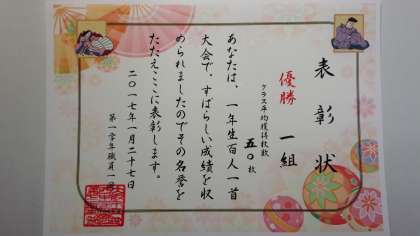 表彰状
優勝 一組
クラス平均獲得枚数
五〇枚
あなたは、一年生百人一首
大会で、すばらしい成績を収
められましたのでその名誉を
たたえここに表彰します。
二〇一七年一月二十七日
第一学年職員一同